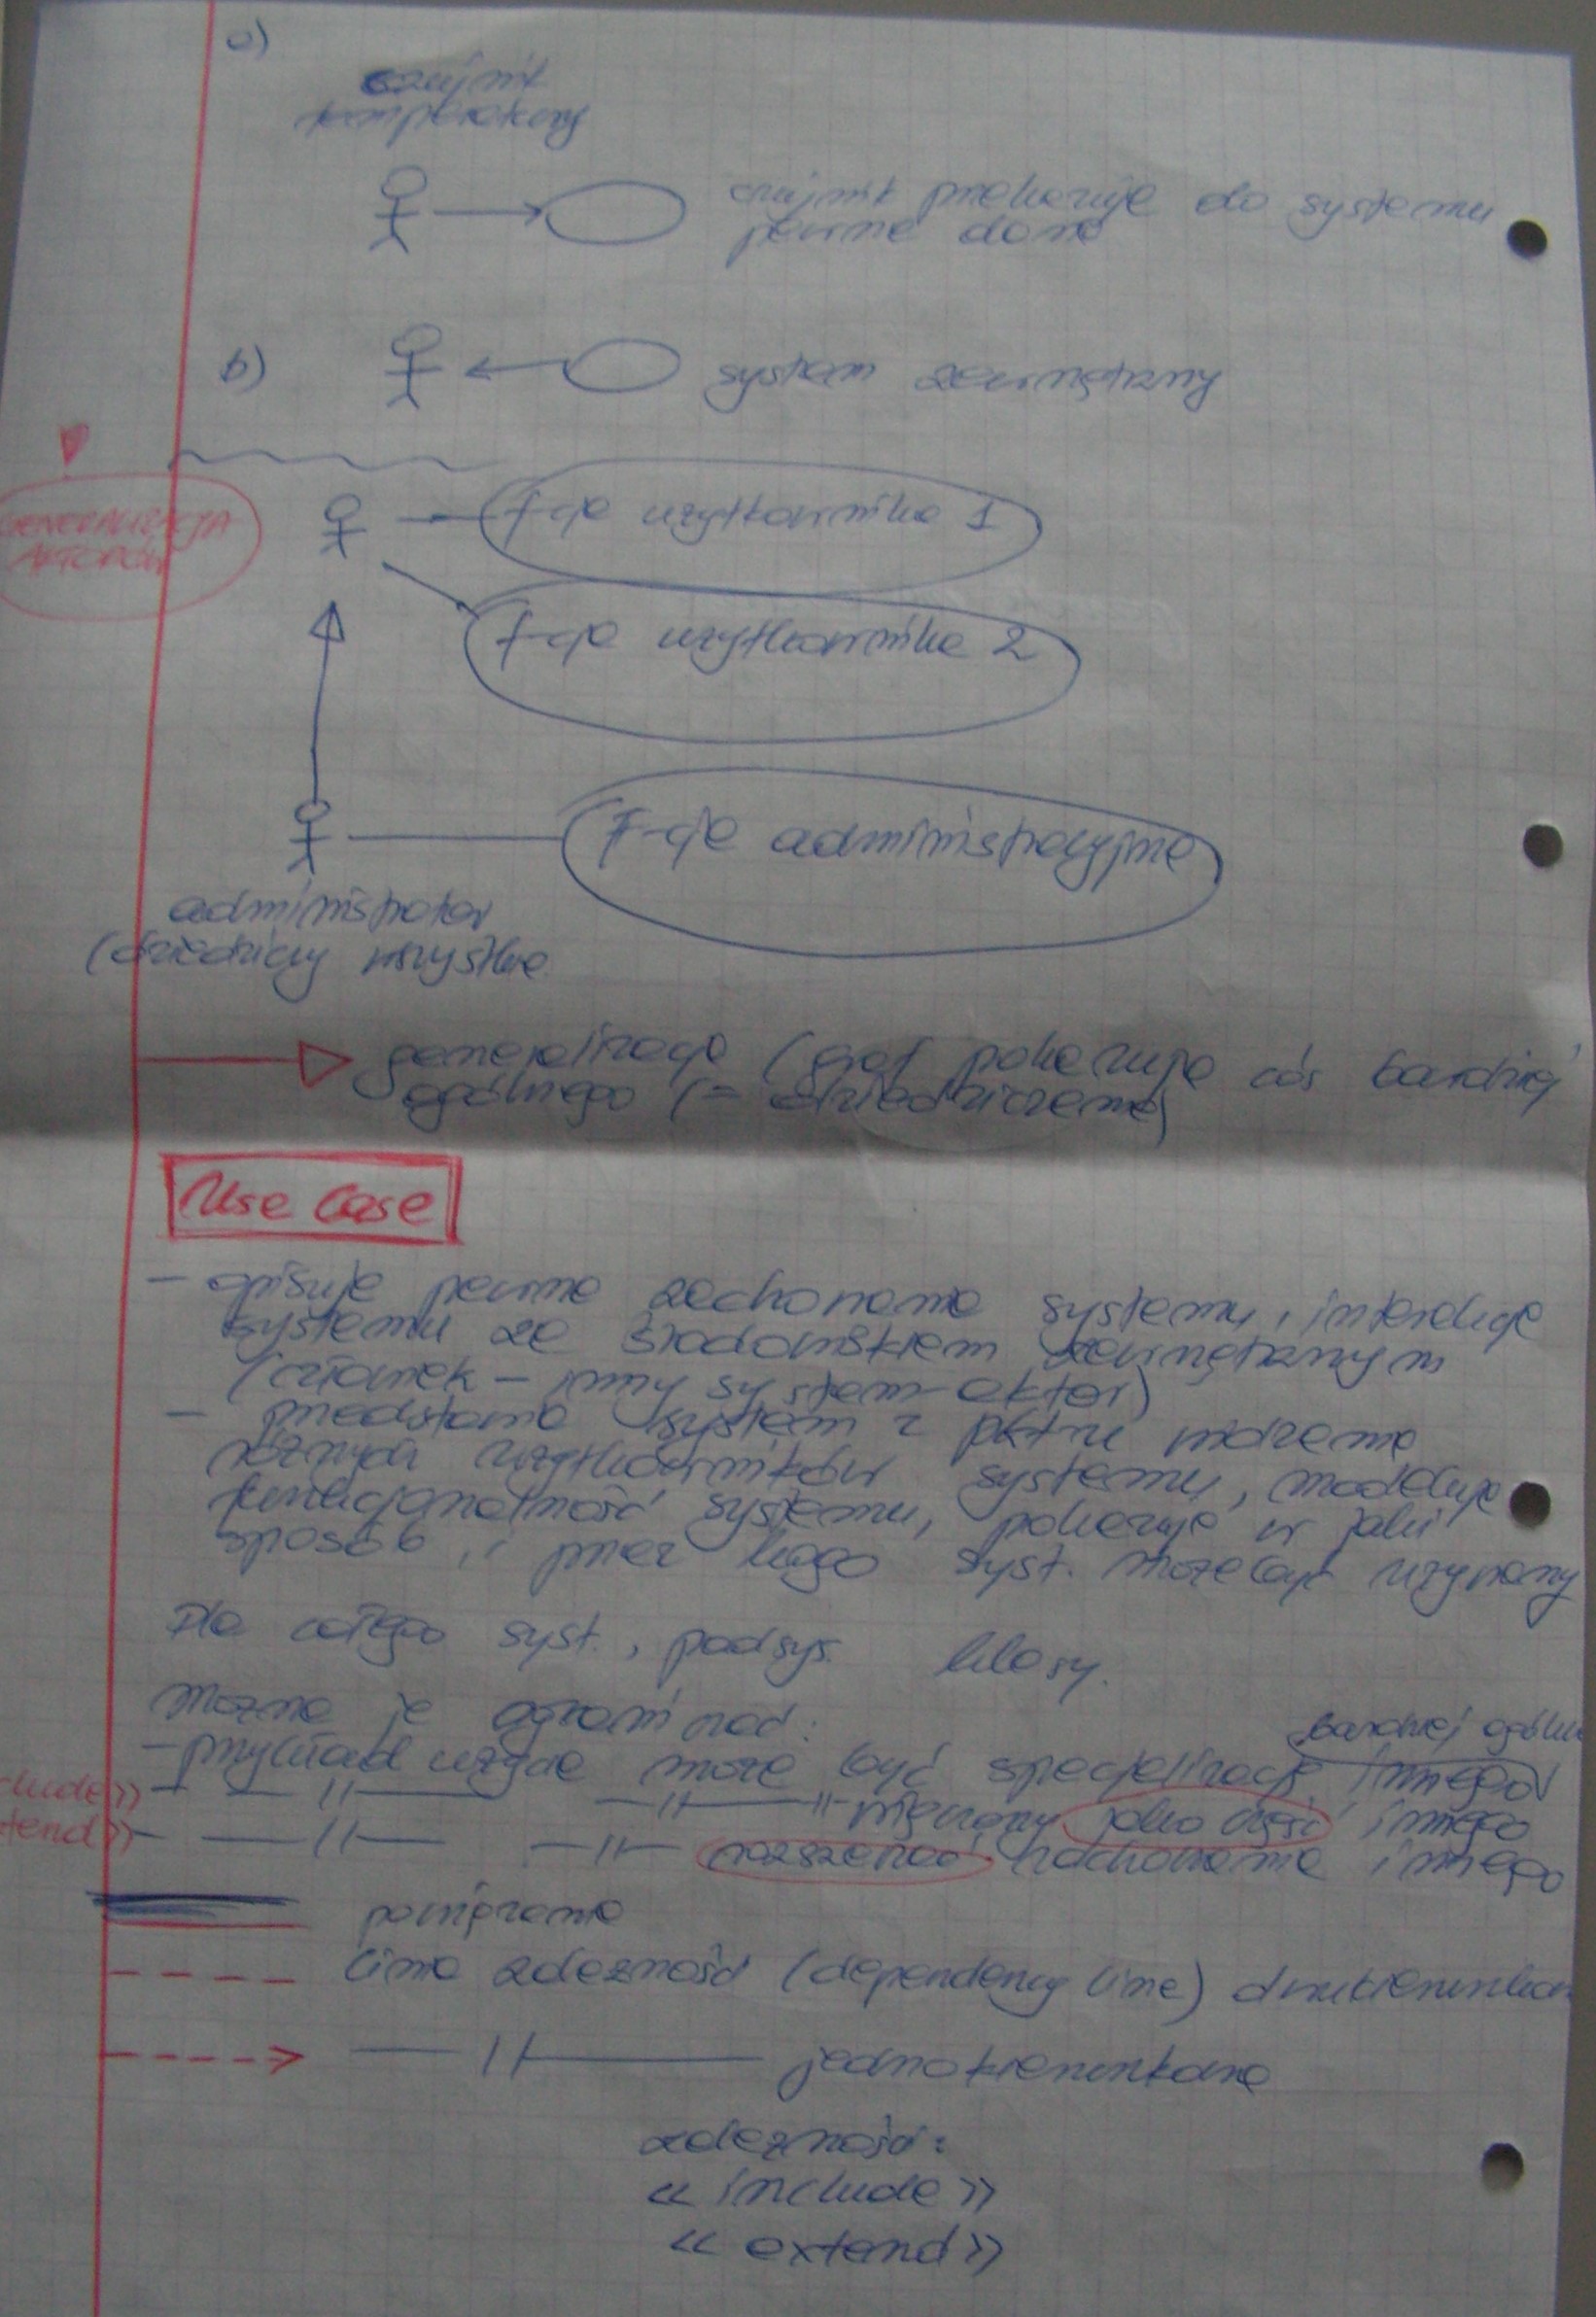 a)
czujnik
temperatury
czujnik przekazuje do systemu
pewne dane
b)
system zewnętrzny
GENERALIZACJA
AKTORÓW
f-cje użytkownika 1
f-cje użytkownika 2
F-cje administracyjne
administrator
(dziedziczy wszystkie
generalizacja (grot pokazuje coś bardziej
ogólnego (= dziedziczenie)
Use Case
- opisuje pewne zachowanie systemu, interakcje
systemu ze środowiskiem zewnętrznym
(człowiek - inny system - aktor)
- przedstawia system z pktu widzenia
różnych użytkowników systemu, modeluje
funkcjonalność systemu, pokazuje w jaki
sposób i przez kogo syst. może być używany
Dla całego syst., podsys. klasy.
można je ograniczać:
bardziej ogólne
- przykład użycia może być specjalizacją innego
clude>> - — // — — // — // - włączony jako część innego
tend>> - — // — — // — rozszerzać zachowanie innego
powiązania
linia zależność (dependency line) dwukierunkow
— // — jednokierunkowe
zależności:
<< include >>
<< extend >>